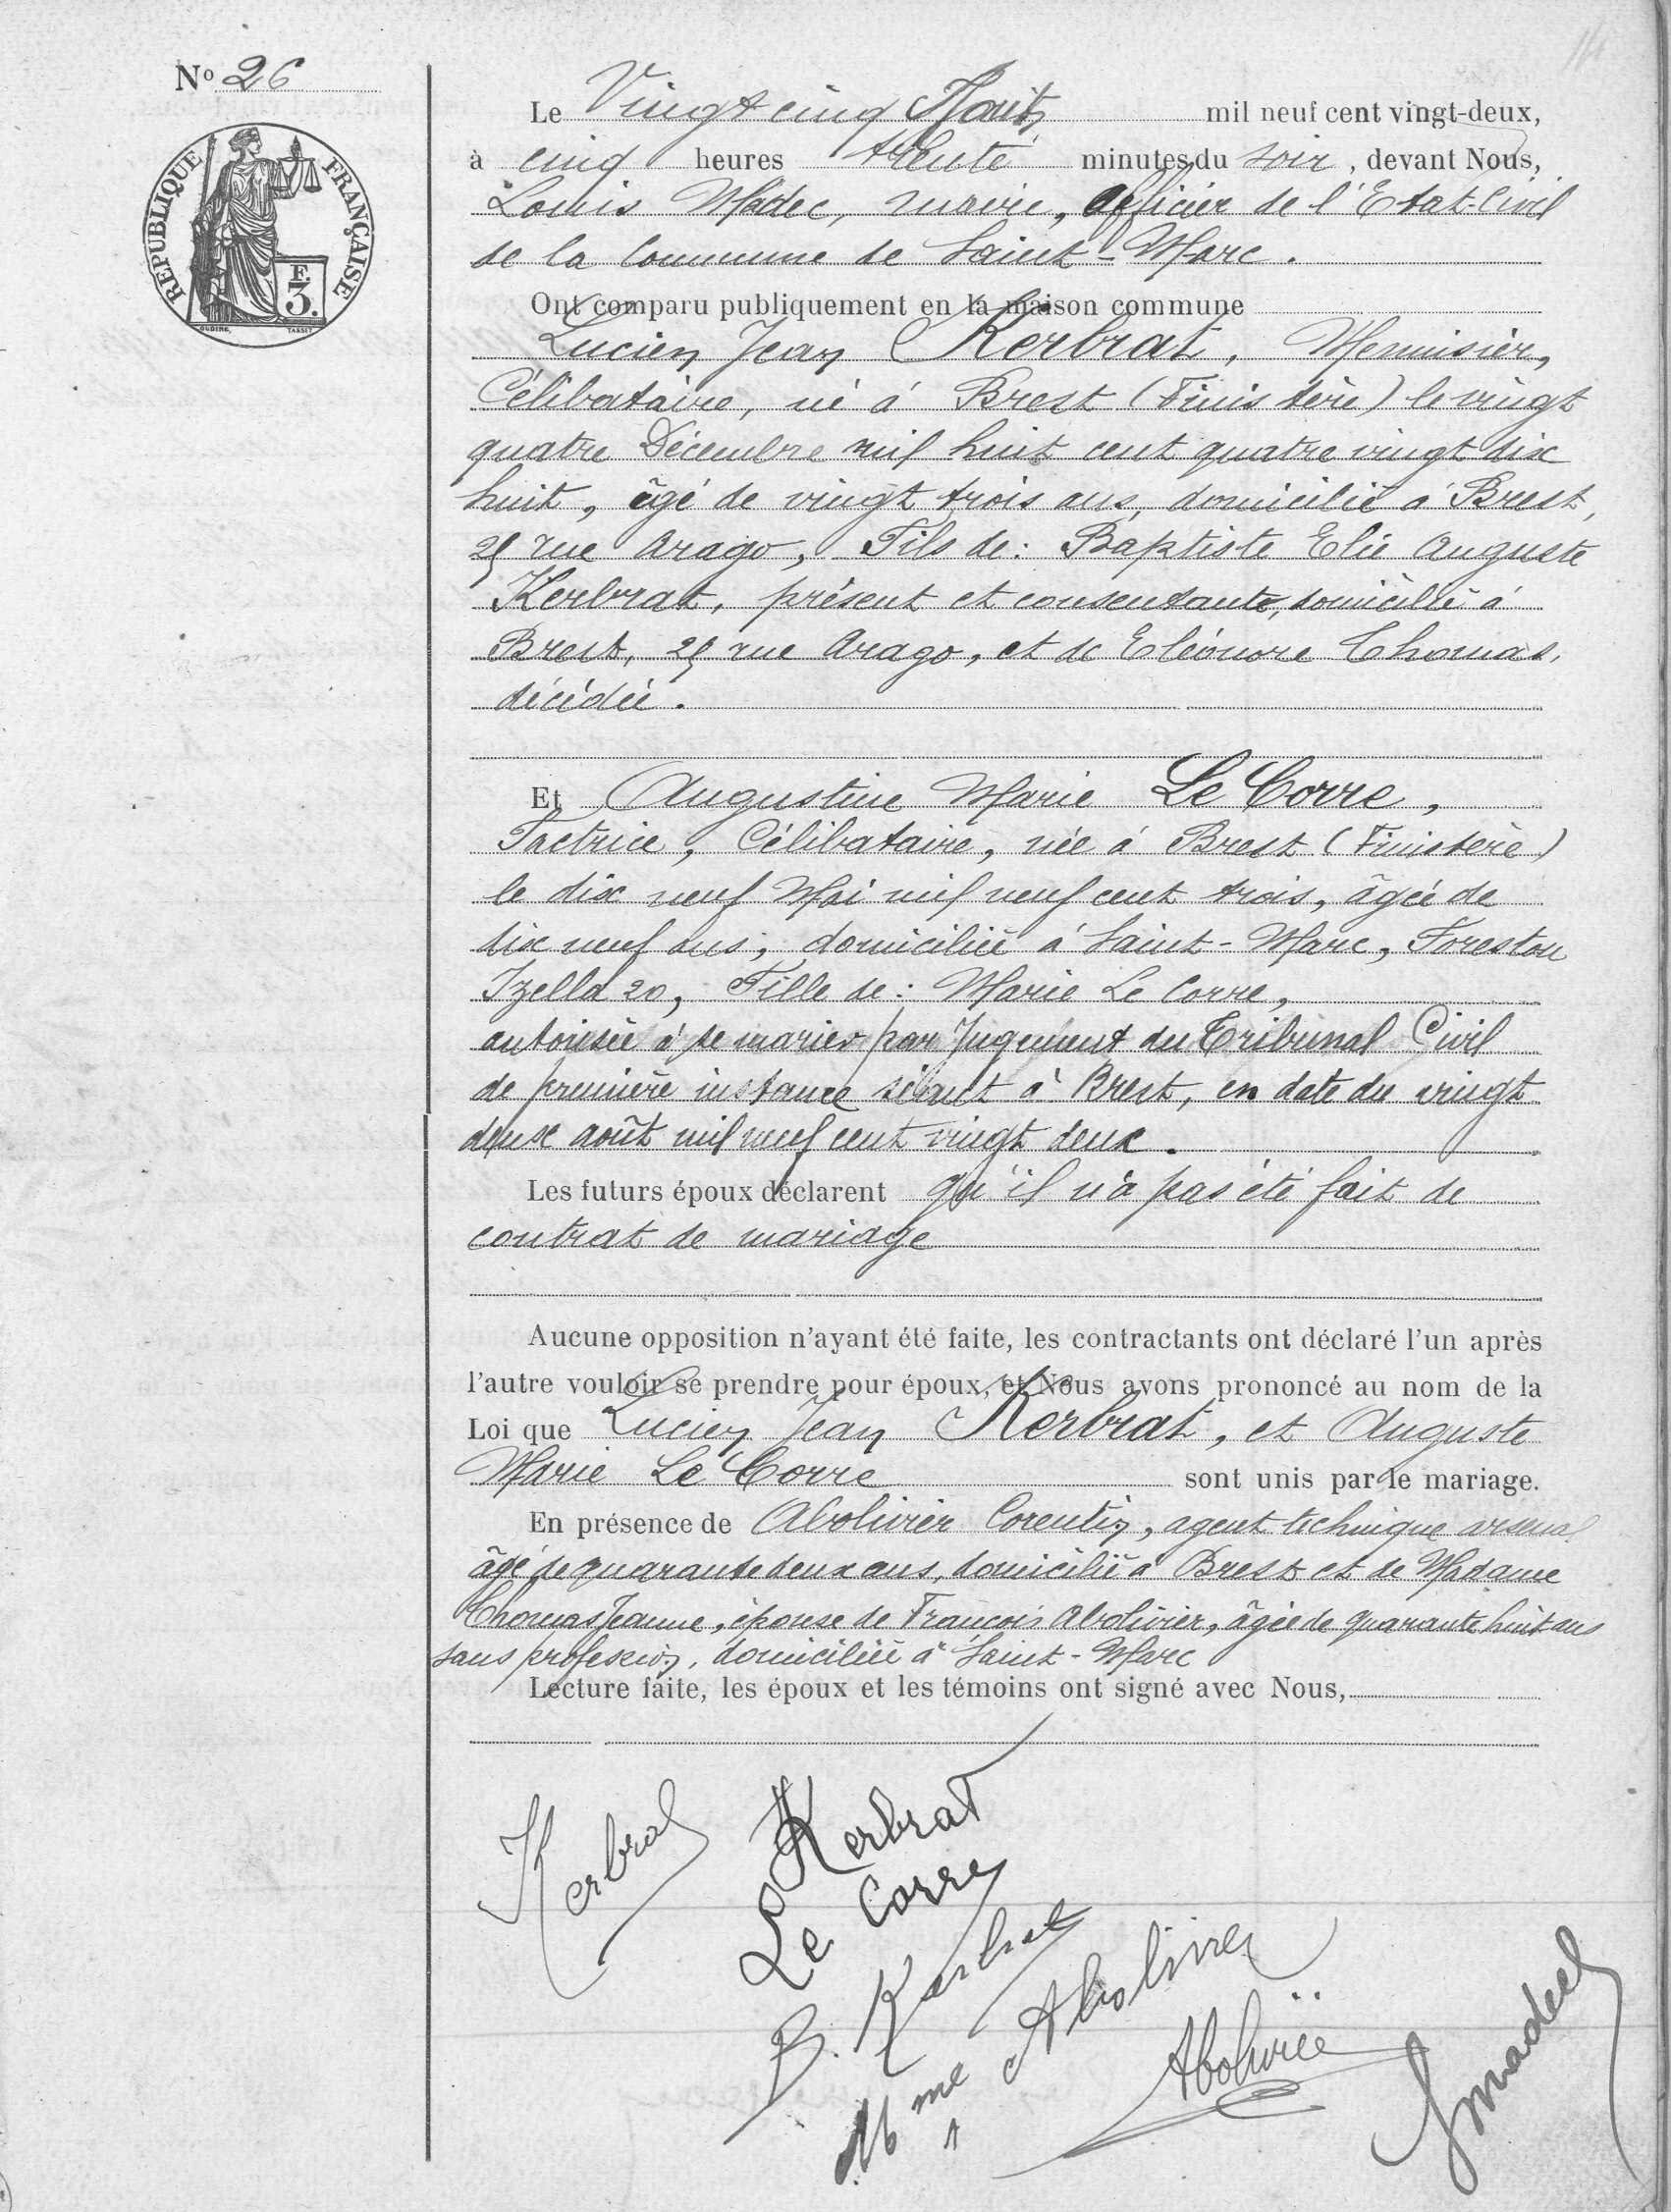 14
Nº 26
RÉPUBLIQUE FRANÇAISE
F.
3.
OUDINÉ.
TASSET
Le Vingt cinq Août, mil neuf cent vingt-deux,
à cinq heures trente minutes du soir, devant Nous,
Louis Madec, maire, Officier de l'Etat-Civil
de la Commune de Saint-Marc.
Ont comparu publiquement en la maison commune
Lucien Jean Kerbrat, Menuisier,
Célibataire, né à Brest (Finistère) le vingt
quatre Décembre mil huit cent quatre vingt dix
huit, âgé de vingt trois ans, domicilié à Brest,
25 rue Arago, Fils de: Baptiste Elie Auguste
Kerbrat, présent et consentante, domicilié à
Brest, 25 rue Arago, et de Eléonore Thomas,
décédée.
Et Augustine Marie Le Corre,
Factrice, Célibataire, née à Brest (Finistère)
le dix neuf Mai mil neuf cent trois, âgée de
dix neuf ans, domiciliée à Saint-Marc, Forestou
Izella 20, Fille de: Marie Le Corre,
autorisée à se marier par Jugement du Tribunal Civil
de première instance séant à Brest, en date du vingt
deux août mil neuf cent vingt deux.
Les futurs époux déclarent qu'il n'a pas été fait de
contrat de mariage
Aucune opposition n'ayant été faite, les contractants ont déclaré l'un après
l'autre vouloir se prendre pour époux, et Nous avons prononcé au nom de la
Loi que Lucien Jean Kerbrat, et Auguste
Marie Le Corre sont unis par le mariage.
En présence de Abolivier Corentin, agent technique arsenal
âgé de quarante deux ans, domicilié à Brest et de Madame
Thomas Jeanne, épouse de François Abolivier, âgée de quarante huit ans
sans profession, domiciliée à Saint-Marc
Lecture faite, les époux et les témoins ont signé avec Nous,
Kerbrat
Kerbrat
Le Corre
B. Kerbrat
Mme Abolivier
Abolivier
Lmadec